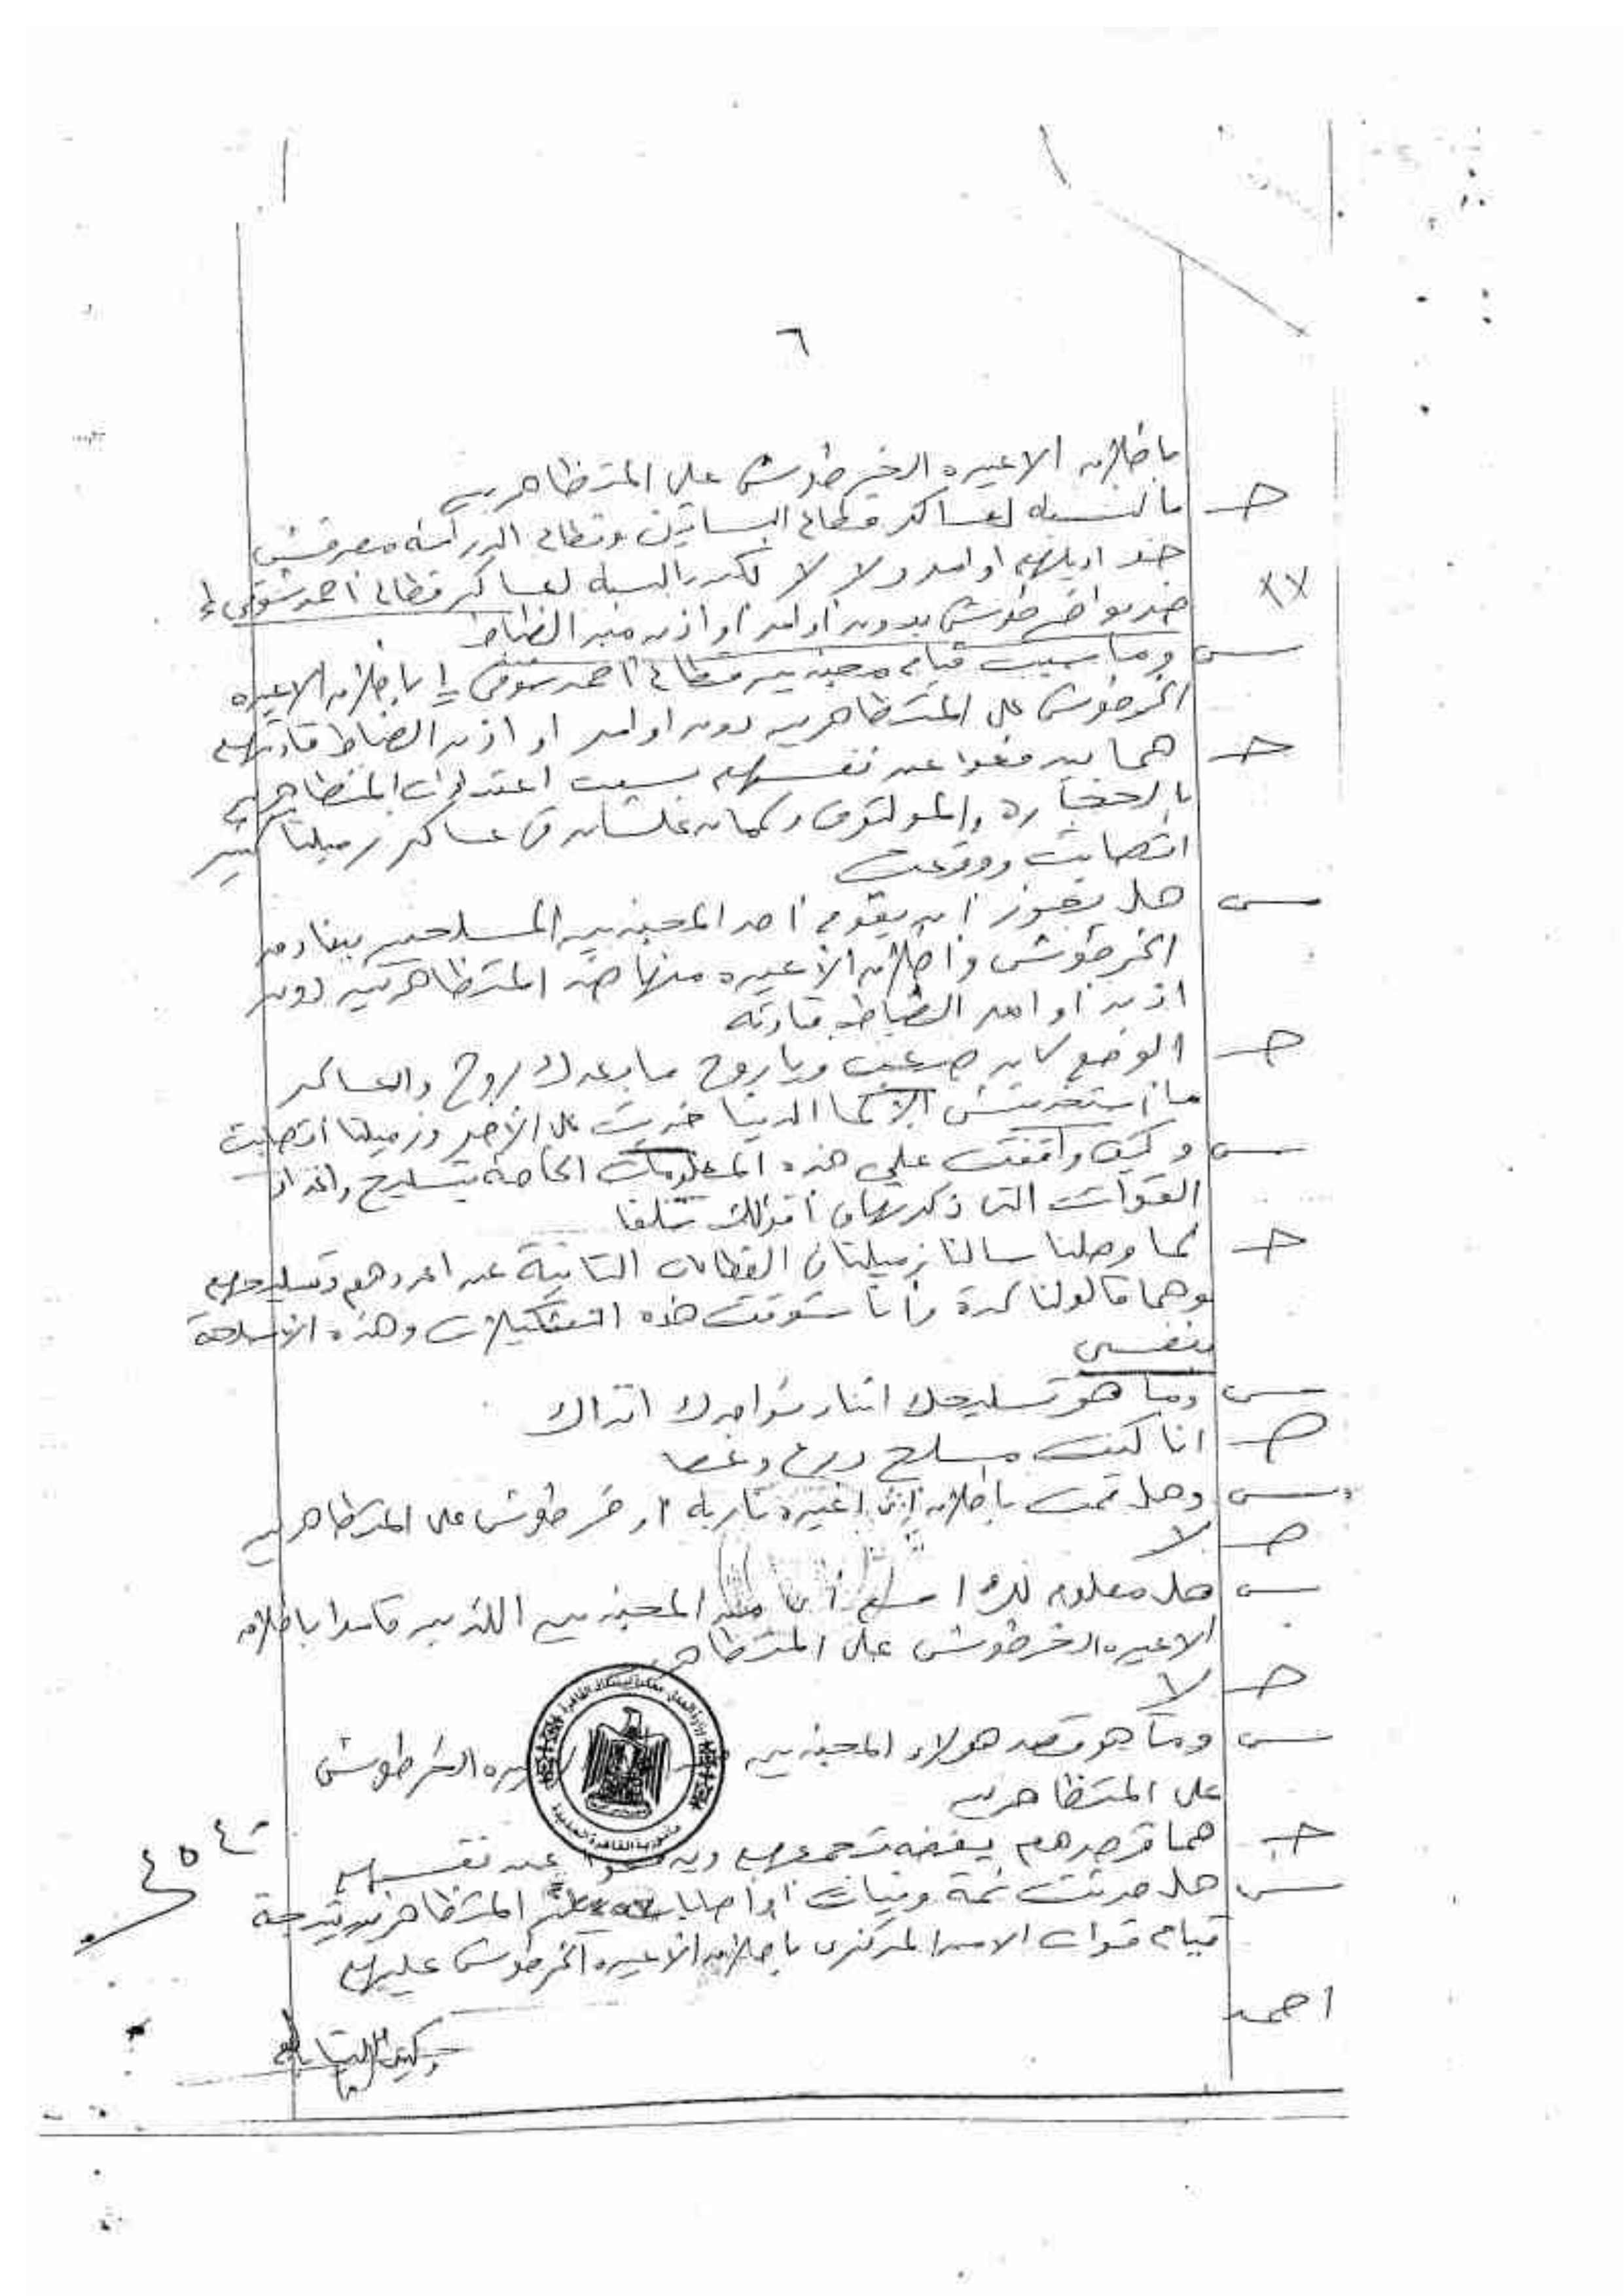 ٦
باطلاق الاعيره الخرطوش على المتظاهرين
ج بالنسبه لعساكر قطاع البساتين وقطاع الدراسة معرفش
حد اديلهم اوامر ولا لا لكن بالنسبه لعساكر قطاع أحمد شوقى
ضربوا خرطوش بدون أوامر أو اذن من الظباط
س وما سبب قيام مجندين قطاع أحمد شوقى باطلاق الاعيره
الخرطوش على المتظاهرين دون اوامر او اذن الضباط قادتهم
ج هما بيدفعوا عن نفسهم بسبب اعتداءات المتظاهرين
بالحجاره والمولتوف وكمان علشان فى عساكر زميلنا كتير
اتصابت ووقعت
س هل يجوز أن يقوم أحد المجندين المسلحين ببنادق
الخرطوش واطلاق الأعيره منها ضد المتظاهرين دون
اذن أو امر الضباط قادته
ج الوضع كان صعب ويا روح ما بعدك روح والعساكر
ما استخدمتش الا لما الدنيا خربت على الأخر وزميلنا اتصابت
س وكيف وافقت على هذه المعلومات الخاصة بتسليح واعداد
القوات التى ذكرتها فى أقوالك سلفا
ج لما وصلنا سالنا زميلنا فى القطاعات التانية عن اعدادهم وتسليحهم
وهما قالولنا كدة وأنا شوفت هذه التشكيلات وهذه الأسلحة
بنفسى
س وما هو تسليحك اثناء تواجدك انذاك
ج انا كنت مسلح درع وعصا
س وهل قمت باطلاق أى اعيره ناريه أو خرطوش على المتظاهرين
ج لا
س هل معلوم لك اسم أيا من المجندين اللذين قاموا باطلاق
الاعيره الخرطوش على المتظاهرين
ج لا
س وما هو قصد هولاء المجندين الخرطوش
على المتظاهرين
ج هما قصدهم يفضه تجمعهم ويدفعوا عن نفسهم
س هل حدثت ثمة وفيات أو اصابات المتظاهرين نتيجة
قيام قوات الامن المركزى باطلاق الأعيره الخرطوش عليهم
احمد
وكيل النيابة
وزارة العدل